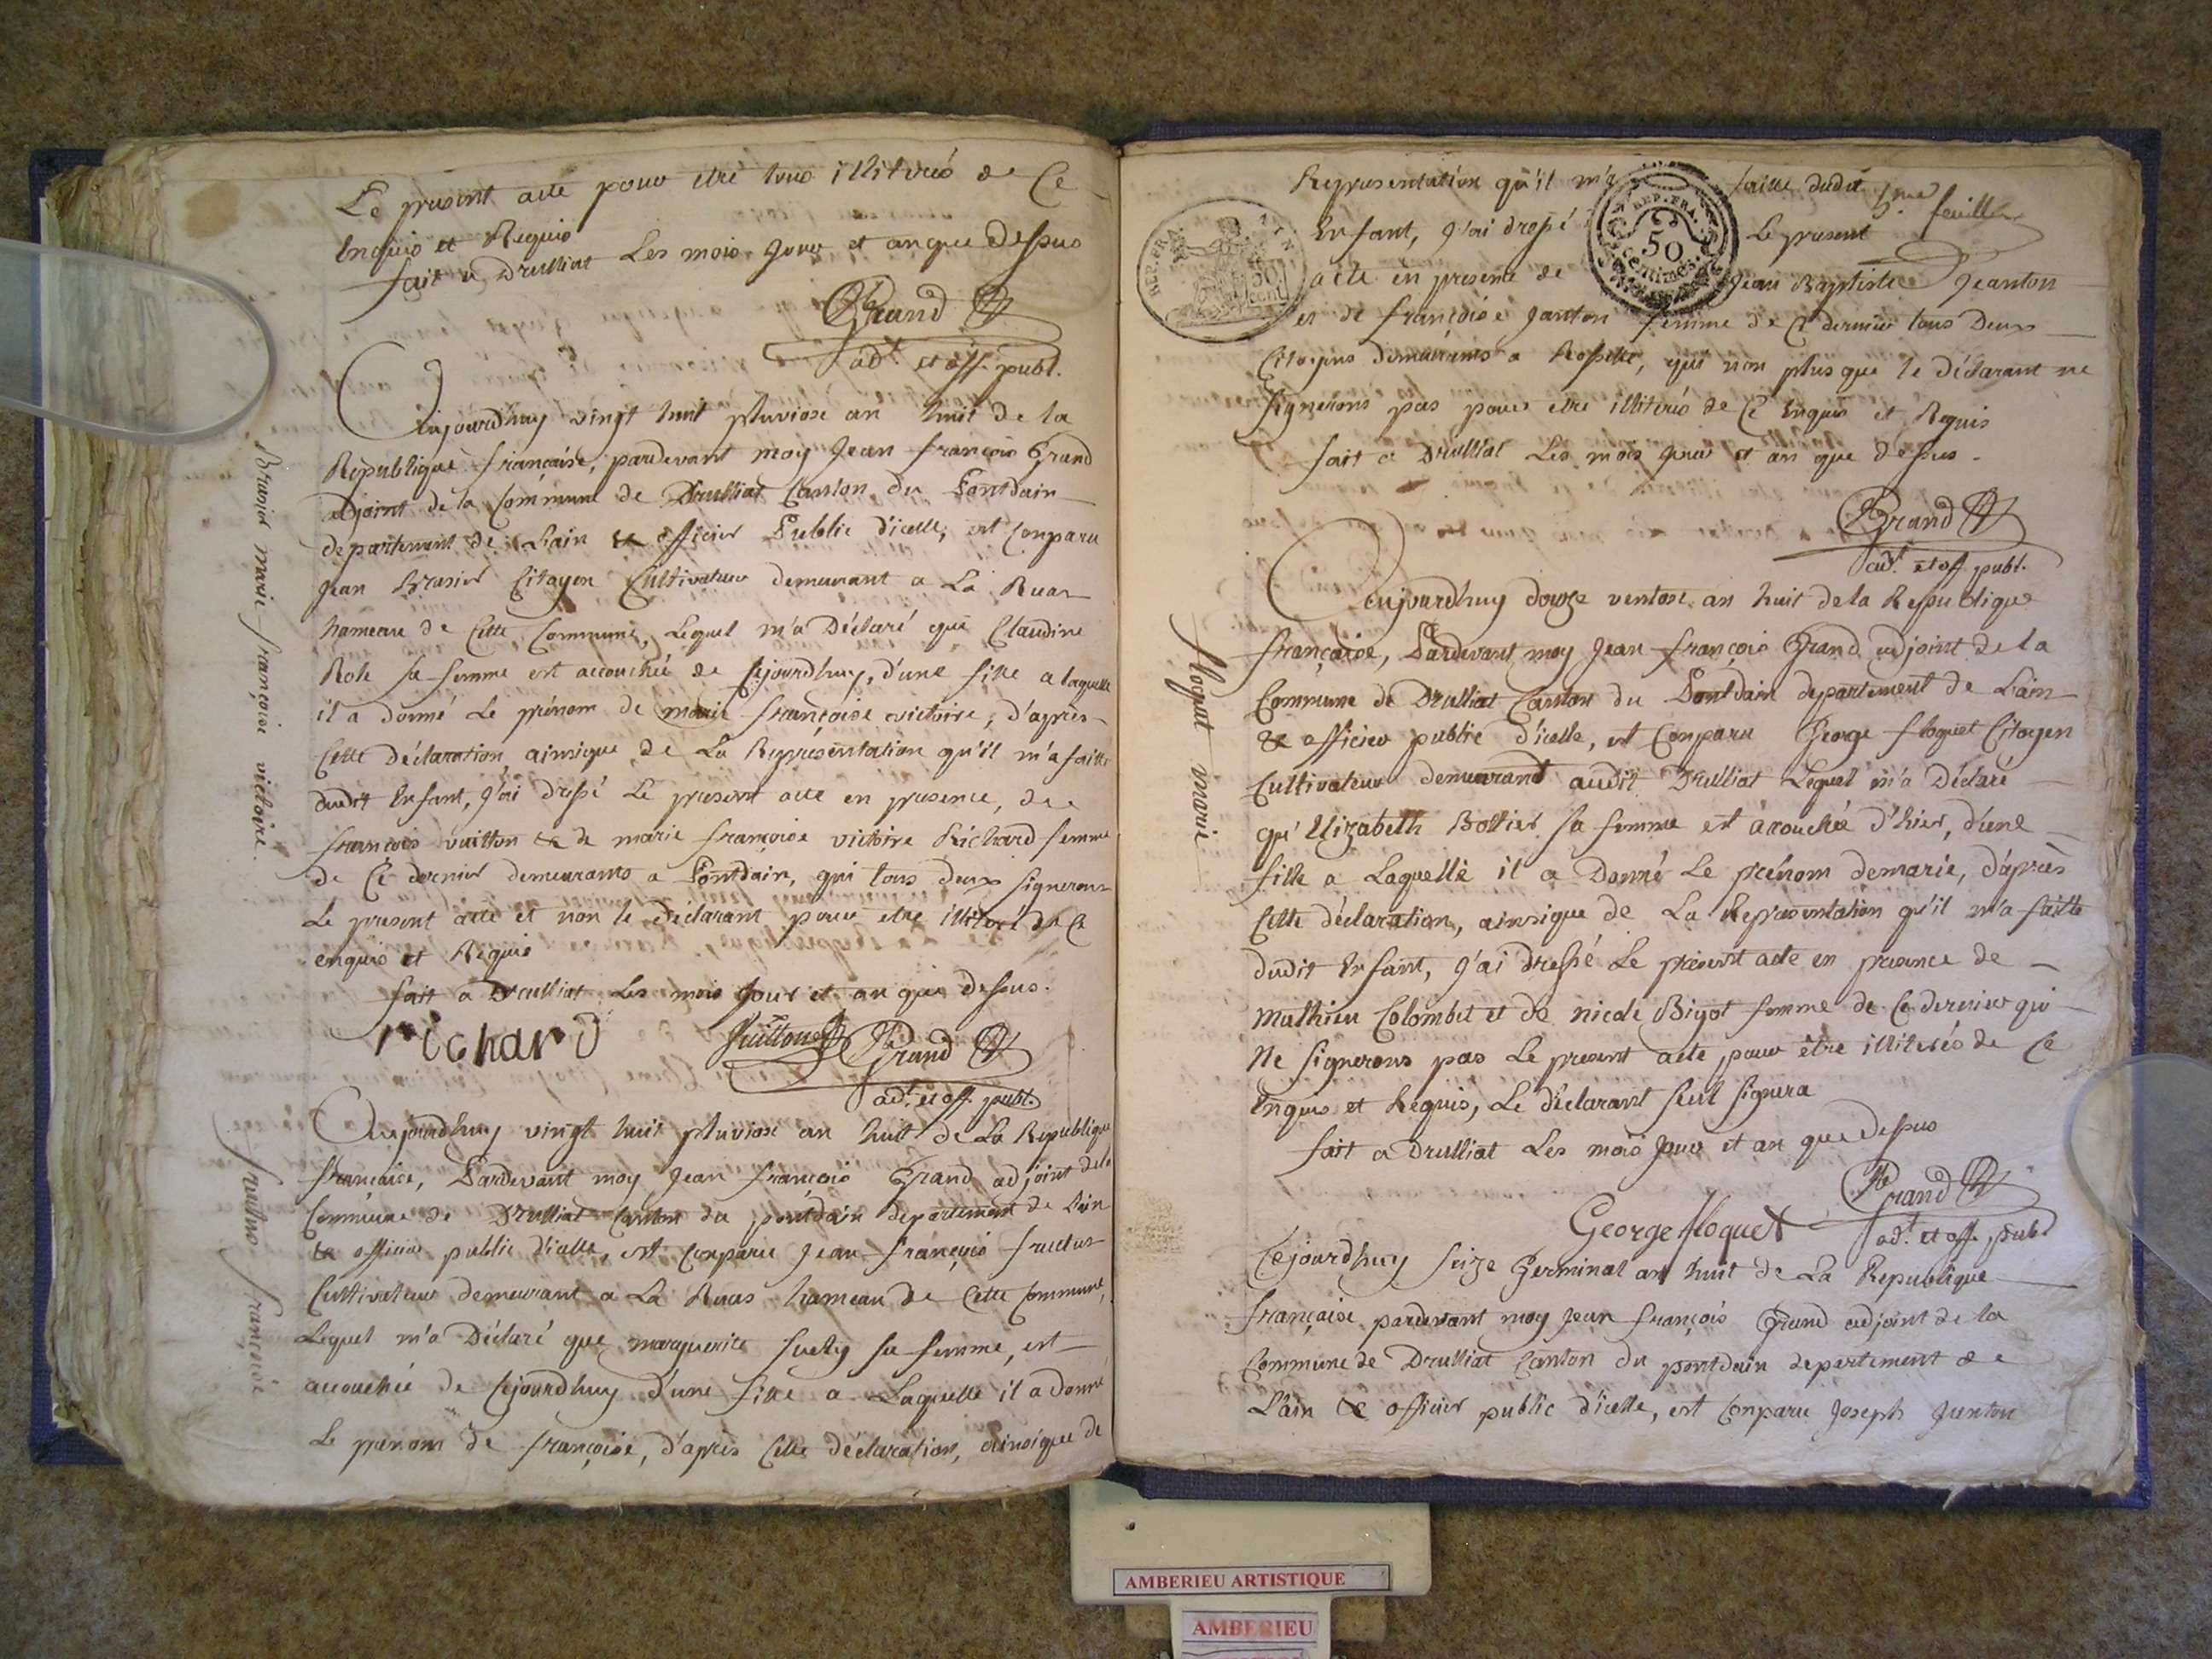 Le present acte pour etre tous illiterés de Ce
Enquis et Requis
fait a Drulliat Les mois Jour et an que Dessus
Grand
adt. et off. publ.
Aujourd'huy vingt huit pluviose an huit de la
Republique française, pardevant moy Jean françois Grand
adjoint de la Commune de Drulliat Canton du Pontdain
departement de Lain & officier Public d'icelle, est Comparu
Jean Brasier Citoyen Cultivateur demeurant a La Ruaz
hameau de Cette Commune, Lequel m'a Déclaré que Claudine
sa femme est accouchée de Cejourdhuy, d'une fille a laquelle
il a donné Le prénom de marie françoise victoire, d'après
Cette déclaration ainsique de La Représentation qu'il m'a faitte
dudit Enfant, J'ai dressé Le present acte en presence, de
françois vuitton & de marie françoise victoire Richard femme
de Ce dernier demeurants a Pontdain, qui tous deux signerons
Le present acte et non le Déclarant pour etre illiteré de Ce
enquis et Requis
fait a Drulliat Les mois Jour et an que dessus.
richard Vuitton Grand
adt. et off. publ.
Brasier marie françoise victoire
Aujourdhuy vingt huit pluviose an huit de La Republique
française, Pardevant moy Jean françois Grand adjoint de la
Commune de Drulliat Canton du pontdain departement de Lain
& officier public d'icelle, est Comparu Jean françois
Cultivateur demeurant a La Ruas hameau de Cette Commune,
Lequel m'a Déclaré que marguerite sa femme, est
accouchée de Cejourdhuy d'une fille a Laquelle il a donné
Le prenom de françoise, d'après Cette déclaration, ainsique de
françoise
Representation qu'il m'a faitte dudit
5me feuillet
Enfant, J'ai dressé Le present
acte en presence de Jean Baptiste Jeanton
REP. FRA. 50 Centimes
REP. FRA. AIN 50 cent
et de françoise Janton femme de Ce dernier tous Deux
Citoyens demeurants a, qui non plus que le déclarant ne
signerons pas pour etre illiterés de Ce Enquis et Requis
fait a Drulliat Les mois Jour et an que dessus.
Grand
adt. et off. publ.
Aujourdhuy douze ventose an huit de la Republique
française, Pardevant moy Jean françois Grand adjoint de la
Commune de Drulliat Canton du Pontdain departement de Lain
& officier public d'icelle, est Comparu George floquet Citoyen
Cultivateur demeurant audit Drulliat Lequel m'a Déclaré
qu'Elizabeth Bottier sa femme est acouchée d'hier, d'une
fille a Laquelle il a Donné Le prénom demarie, d'après
Cette déclaration, ainsique de La Representation qu'il m'a faitte
dudit Enfant, J'ai dressé Le present acte en presence de
Mathieu Colombet et de nicole Bigot femme de Ce dernier qui
Ne signerons pas Le present acte pour être illiterés de Ce
Enquis et Requis, Le déclarant seul signera
fait a Drulliat Les mois Jour et an que dessus
George floquet Grand
adt. et off. publ
floquet marie
Cejourdhuy seize Germinal an huit de La Republique
française pardevant moy Jean françois Grand adjoint de la
Commune de Drulliat Canton du pontdain departement de
L'ain & officier public d'icelle, est Comparu Joseph Janton
AMBERIEU ARTISTIQUE
AMBERIEU